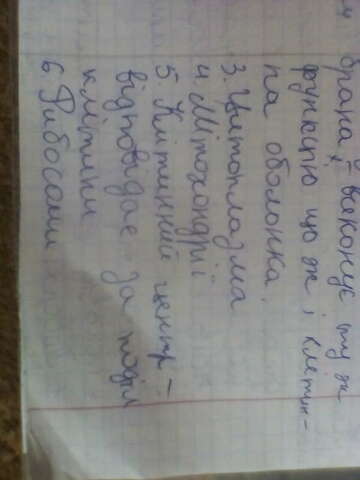 брана - виконує ту ж
функцію що ж і клітин-
на оболонка.
3. Цитоплазма
4. Мітохондрії
5. Клітинний центр -
відповідає за поділ
клітини
6. Рибосоми